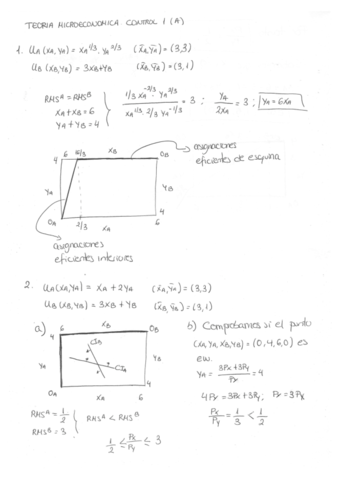 TEORIA MICROECONOMICA CONTROL 1 (A)
1. UA (XA, YA) = XA^1/3 · YA^2/3   (X̄A, ȲA) = (3,3)
UB (XB, YB) = 3XB + YB   (X̄B, ȲB) = (3,1)
RMS^A = RMS^B
XA + XB = 6
YA + YB = 4
1/3 XA^-2/3 · YA^2/3 / XA^1/3 · 2/3 YA^-1/3 = 3 ; YA/2XA = 3 ; YA = 6XA
asignaciones
eficientes de esquina
6 16/3 XB OB
4
YA YB
4
OA 2/3 XA 6
asignaciones
eficientes interiores
2. UA (XA, YA) = XA + 2YA   (X̄A, ȲA) = (3,3)
UB (XB, YB) = 3XB + YB   (X̄B, ȲB) = (3,1)
a)
4 6 XB OB
CIB
YA CIA YB
4
OA XA 6
RMS^A = 1/2
RMS^B = 3
RMS^A < RMS^B
1/2 ≤ Px/Py ≤ 3
b) Comprobamos si el punto
(XA, YA, XB, YB) = (0,4,6,0) es
ew.
YA = 3Px + 3Py / Py = 4
4Py = 3Px + 3Py ; Py = 3Px
Px/Py = 1/3 < 1/2